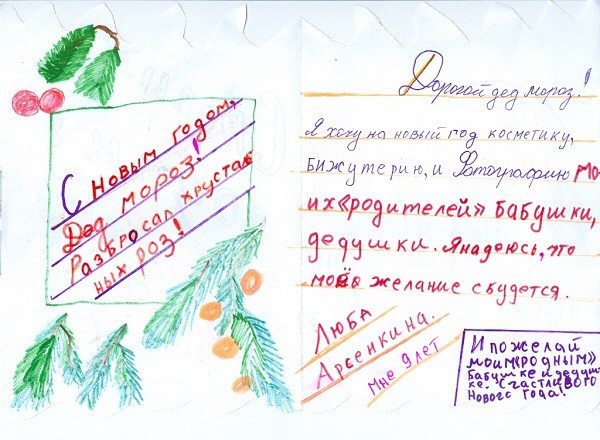 С новым годом,
Дед мороз!
Разбросал хрусталь
ных роз!
Дорогой дед мороз!
Я хочу на новый год косметику,
бижутерию, и Фотографию мо-
их «родителей» бабушки,
дедушки. Я надеюсь, что
моё желание сбудется.
Люба
Арсенкина.
Мне 9 лет
И пожелай
моим «родным»
бабушке и дедуш-
ке. Счастливого
Нового года!